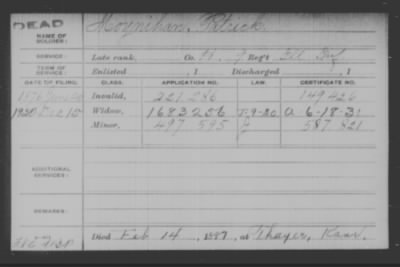 DEAD
NAME OF SOLDIER: Moynihan, Patrick
SERVICE: Late rank, Co. H, 9 Reg't Ill
TERM OF SERVICE: Enlisted , 1 Discharged , 1
DATE OF FILING. CLASS. APPLICATION NO. LAW. CERTIFICATE NO.
1876 Invalid, 221 286 149 426
1920 Dec 15 Widow, 1683256 5-9-20 A 6-18-31
Minor, 497 595 587 821
ADDITIONAL SERVICES:
REMARKS:
Died Feb 14, 1887, at Thayer, Kans.